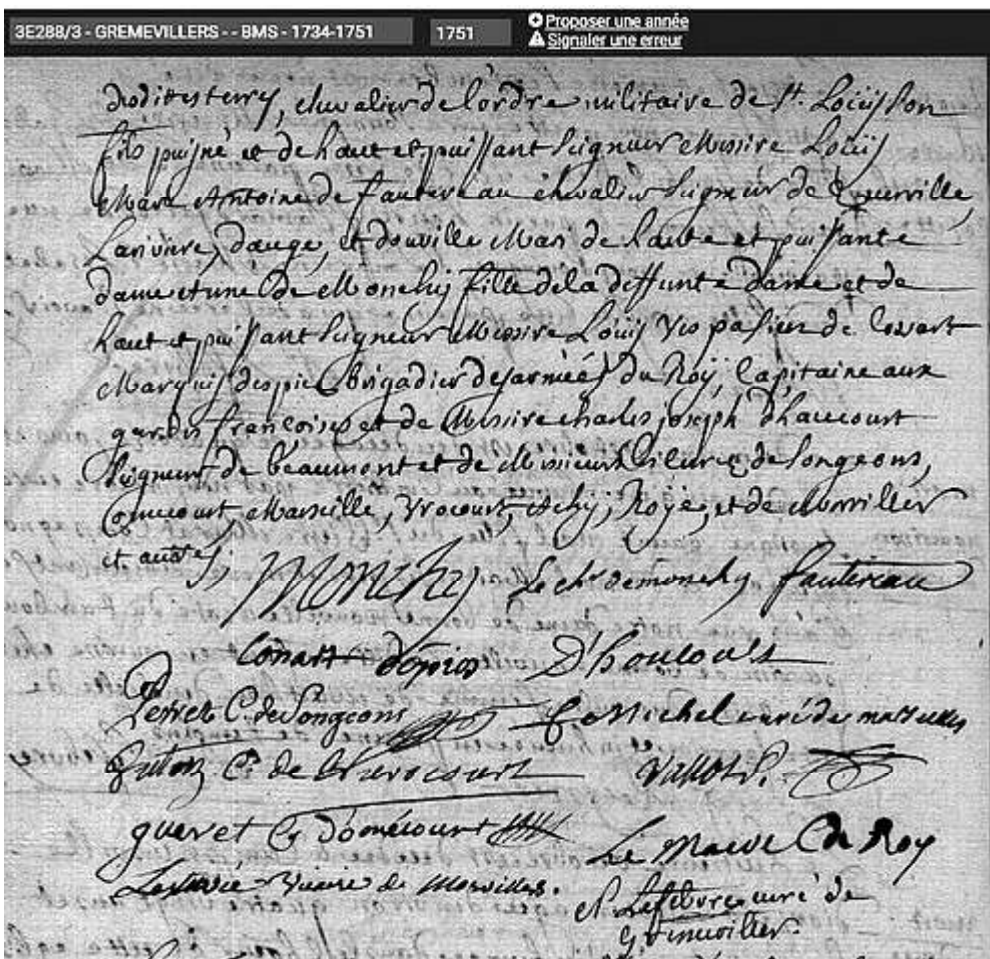 3E288/3 - GREMEVILLERS - - BMS - 1734-1751 1751 Proposer une année
Signaler une erreur
chevalier de lordre militaire de St. Loüis Son
fils puisné et de haut et puissant Seigneur Messire Loüis
Marc Antoine de fautereau chevalier Seigneur de
Lariviere, dauge, et douville Mari de haute et puissante
dame de Monchy fille de la deffunte dame et de
haut et puissant Seigneur Messire Loüis de Conart
Marquis despies Brigadier des armées du Roy, Capitaine aux
gardes francoises et de Messire charles joseph d'haucourt
Seigneur de beaumont et de Messieurs de Songeons,
Marseille, Vrocourt, Achy, Roye, et de Morviller
et autres
Monchy Le chr demonchy fautereau
Conart despies D'
C. de Songeons Michel curé de
C. de Vallot
queret C. d'omécourt Le Maire C. de Roy
Vicaire de Morviller. N. Lefebvre curé de
Gremeviller.